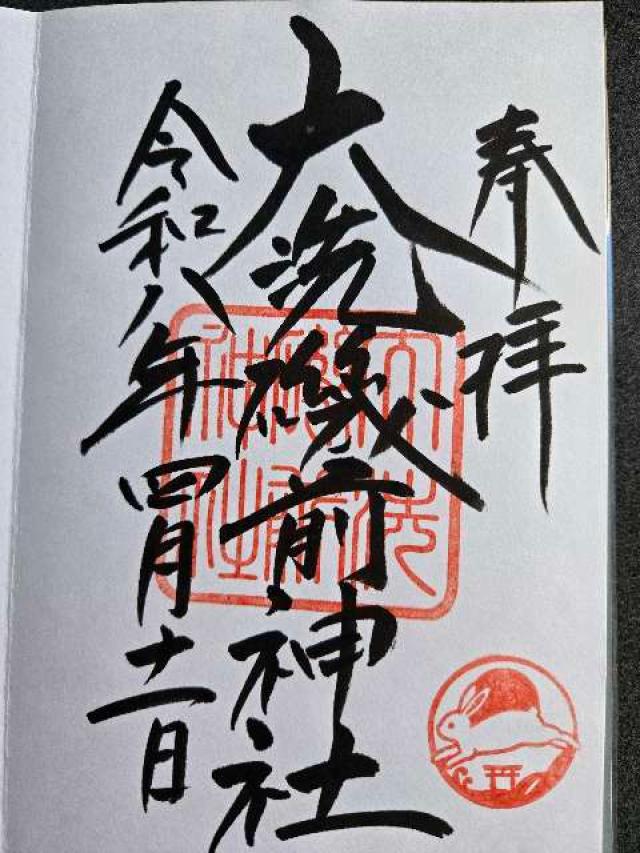 奉拝
大洗磯前神社
令和八年四月十一日
大洗磯前神社